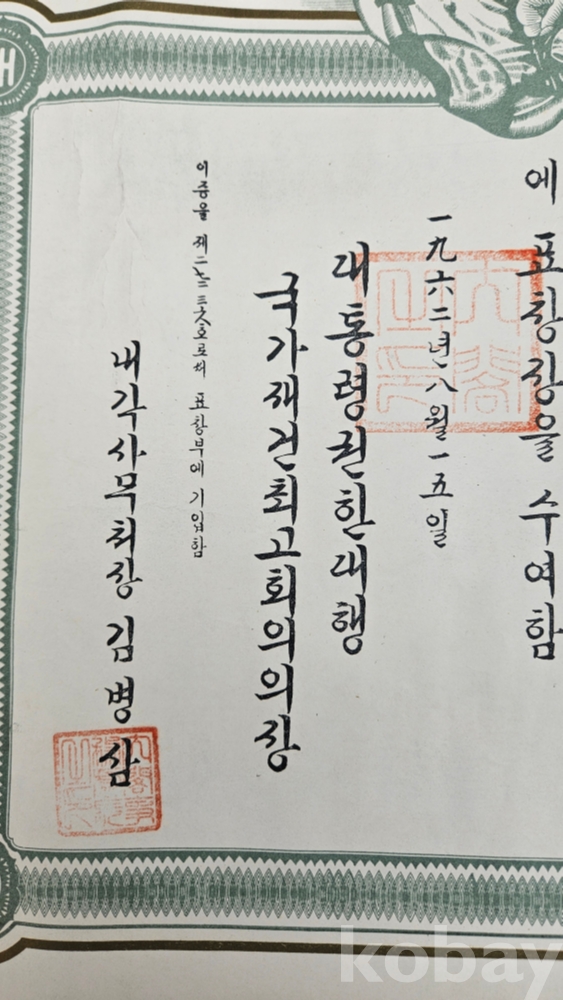 에 표창장을 수여함
一九六二年八월一五일
대통령권한대행
국가재건최고회의의장
이증을 제 호로써 표창부에 기입함
내각사무처장 김병삼
kobay